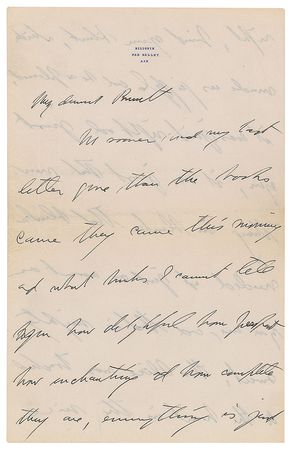 BILIGNIN
PAR BELLEY
AIN
My dearest
No sooner had my last
letter gone than the books
came they came this morning
and what books I cannot tell
you how delightful how perfect
how enchanting and how complete
they are, everything is just